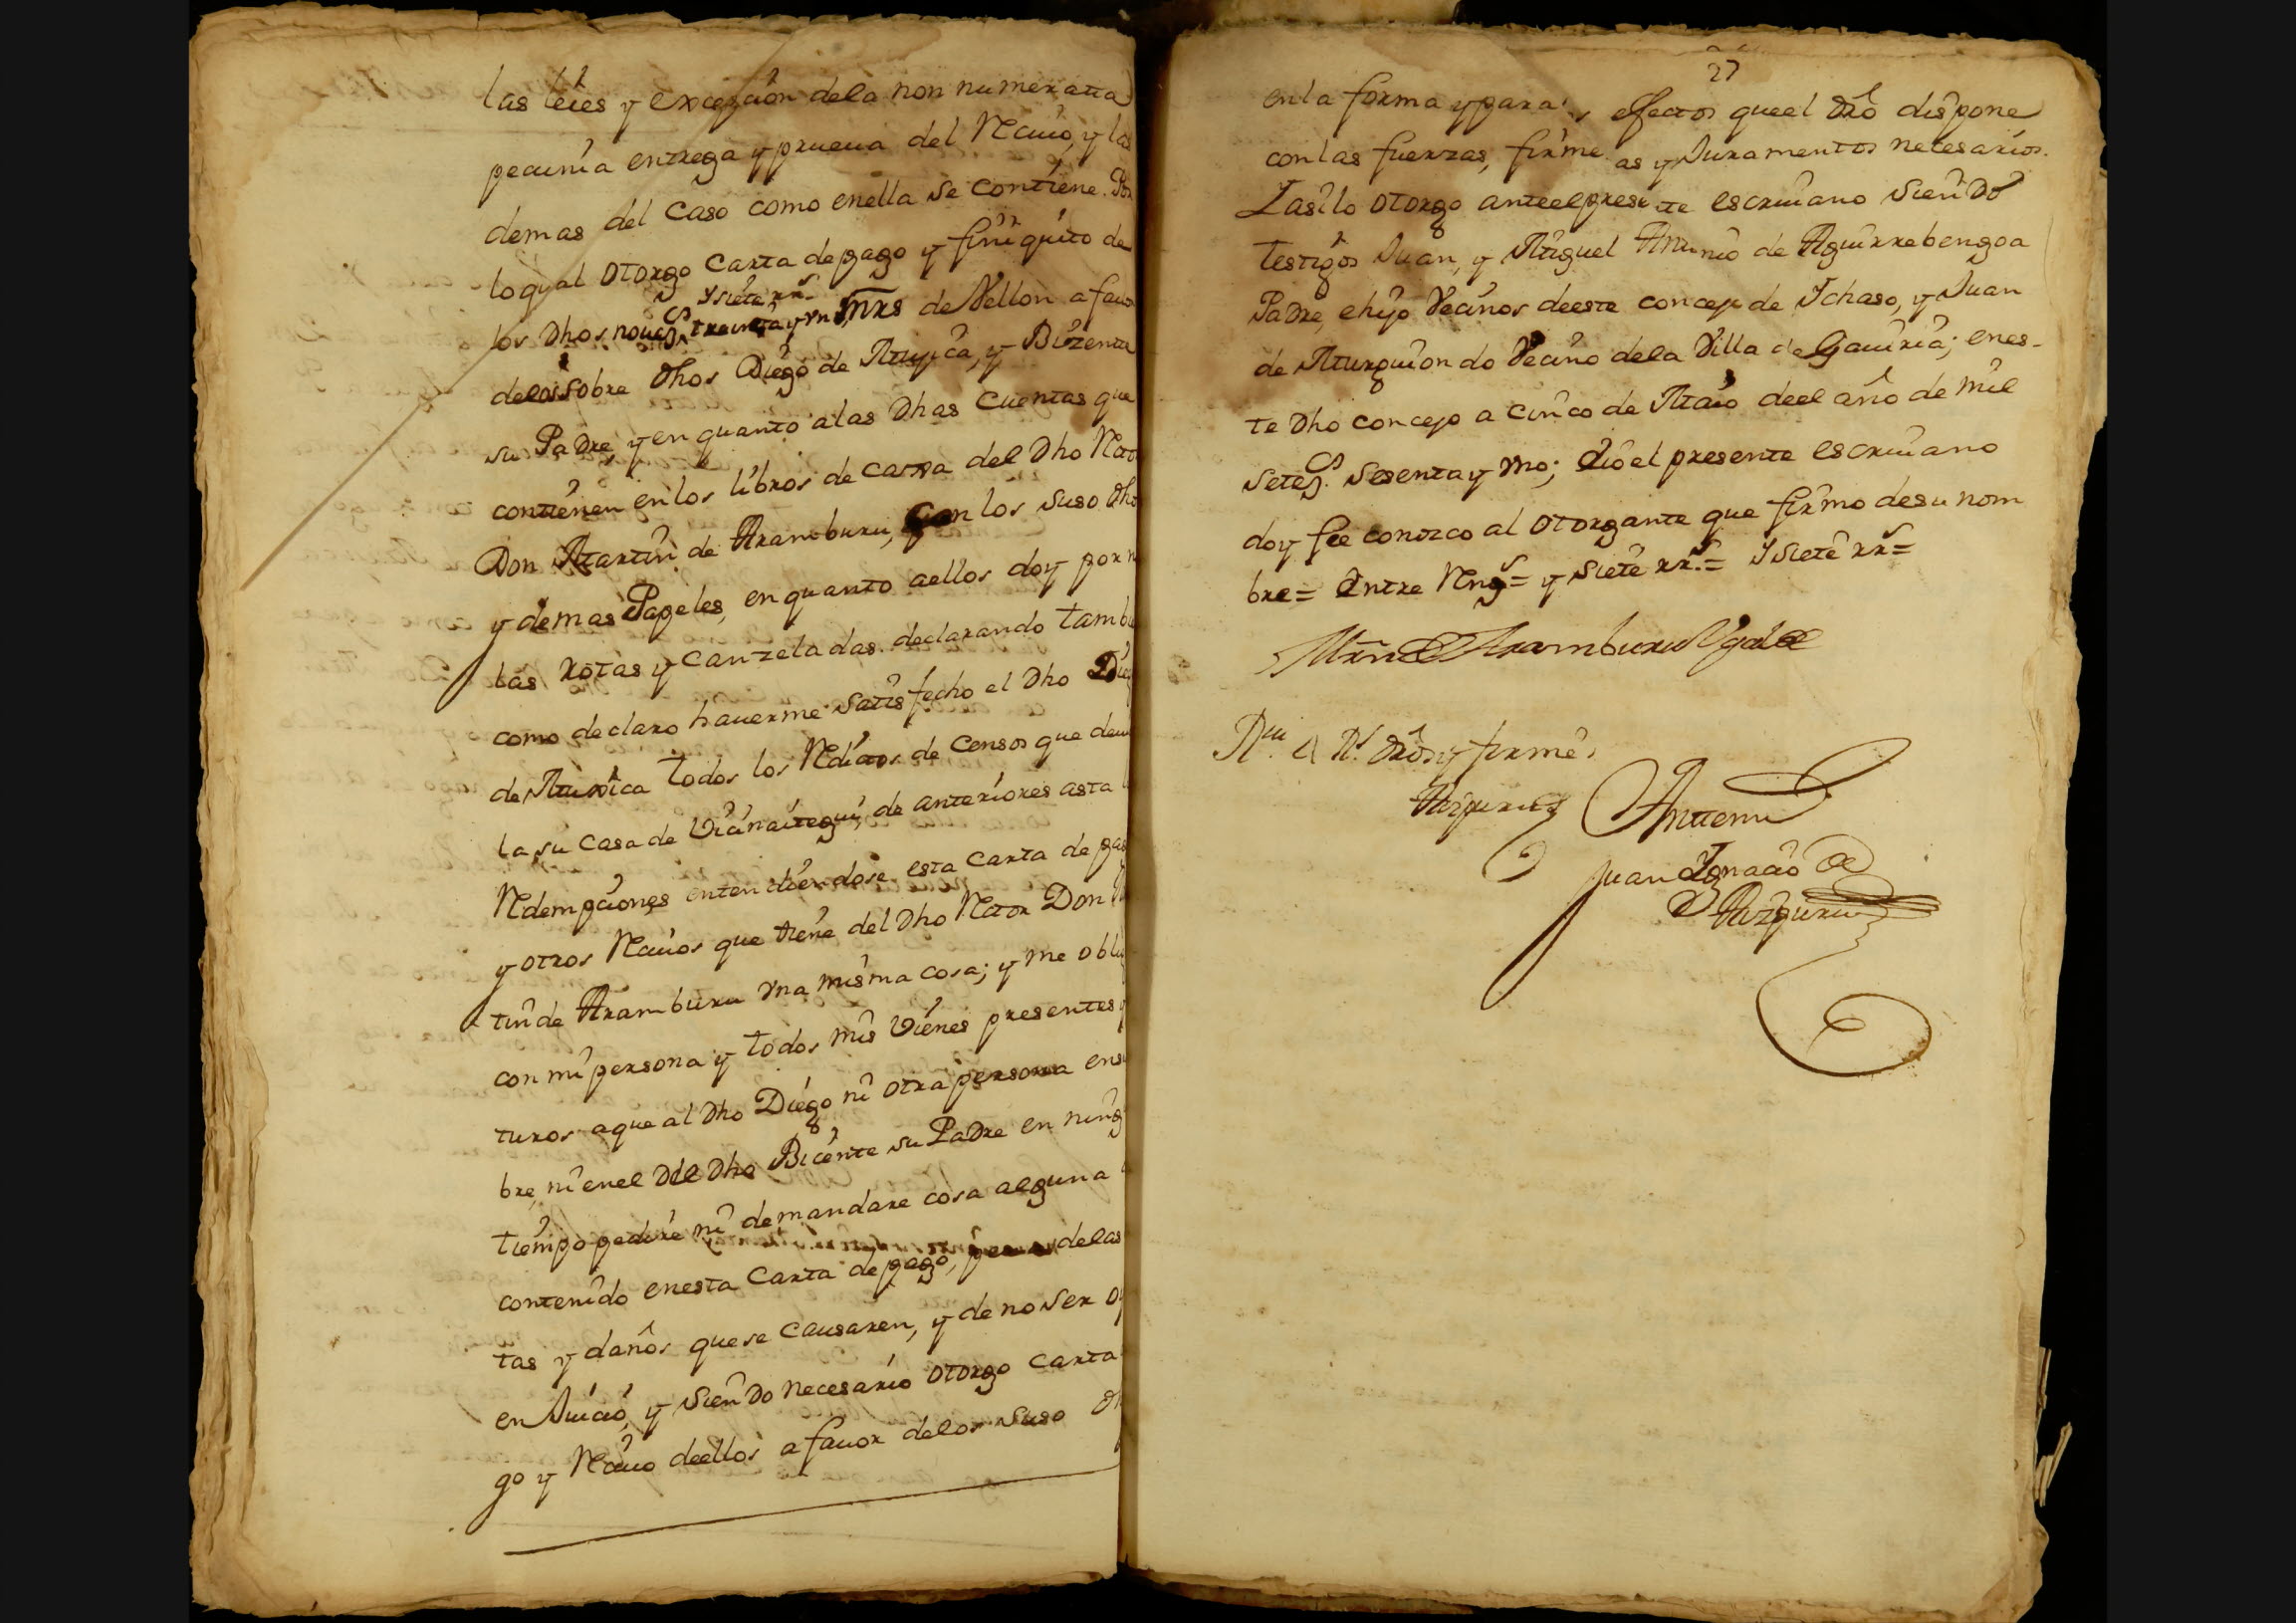 las leies y excepcion dela non numerata
pecunia entrega y prueua del Reciuo, y las
demas del caso como enella se contiene. Por
loqual otorgo Carta depago y finiquito de
Ysiete rrs
los Dhos nouecs treinta y un mrs de Vellon a fauor
delos sobre Dhos Diego de Muxica, y Bizente
su Padre, y en quanto alas Dhas Cuentas que
contienen enlos libros de caxa del Dho Rector
Don Martin de Aramburu, con los suso Dhos
y demas Papeles, en quanto aellos doy por n
las rotas y canzeladas. declarando tambi
como declaro hauerme satisfecho el Dho Dieg
de Muxica todos los Reditos de Censos que deui
la su Casa de Vicinaitegui, de anteriores asta l
Redempciones entendiendose esta Carta de pag
y otros Reciuos que tiene del Dho Rector Don M
tin de Aramburu vna misma cosa; y me oblig
con mi persona y todos mis Vienes presentes y
turos aque al Dho Diego ni otra persona ensu
bre, ni enel Del Dho Bicente su Padre en ning
tiempo pedire ni demandare cosa alguna
contenido enesta Carta de pago, pena delas
tas y daños quese causaren, y de no ser oy
en Juicio, y Siendo necesario otorgo carta
go y Reciuo deellos a fauor delos suso Dh
27
enla forma y para efectos queel Dro dispone
conlas fuerzas, firme as y Juramentos necesarios.
Yasilo otorgo anteelpresente escriuano Siendo
testigos Juan, y Miguel Antonio de Aguirrebengoa
Padre, ehijo Vecinos deeste concejo de Ichaso, y Juan
de Murguiondo Vecino dela Villa de Gauiria; enes-
te Dho concejo a cinco de Maio deel año de mil
setecs. sesenta y vno; Eio el presente escriuano
doy fee conozco al otorgante que firmo desu nom
bre= Entre Rengs= y siete rrs.= Ysiete rrs=
Mrn de Aramburu Vgalde
Dros y firme
Aizpuru Antemi
Juan Ignacio de
Aizpuru